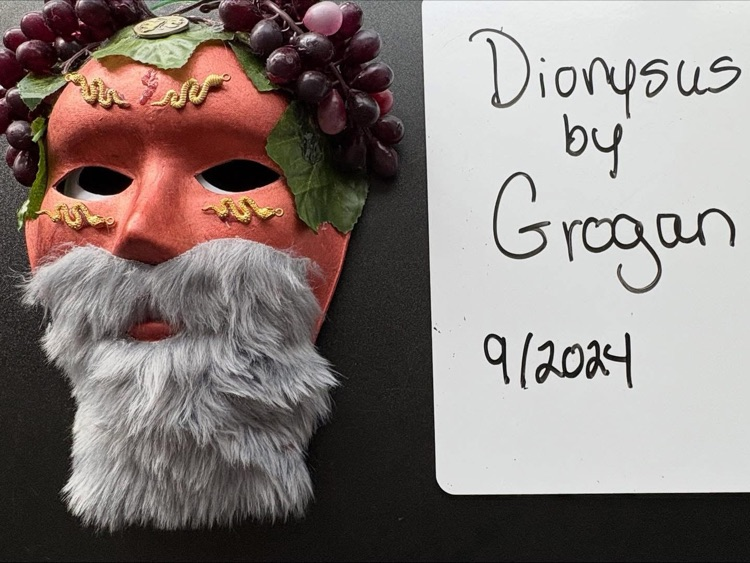 Dionysus
by
Grogan
9/2024